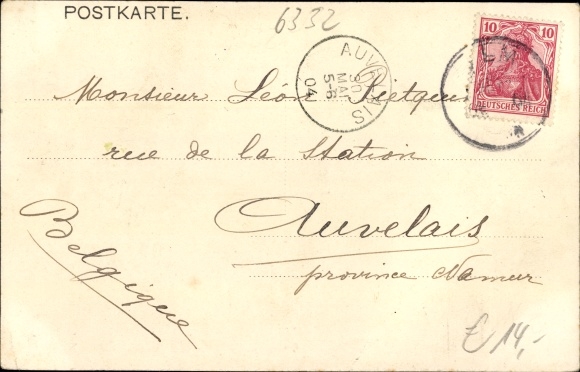 POSTKARTE.
6332
10 10
DEUTSCHES REICH
AUVELAIS
30
MAI
5-6
04
EM
Monsieur Léon
rue de la Station
Auvelais
province Namur
Belgique
€ 14,-